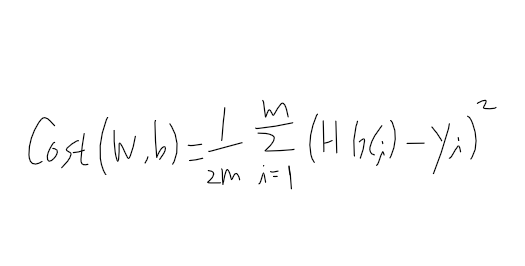 Cost(W,b) = 1/2m Σ_{i=1}^{m} (H(x_i) - y_i)^2